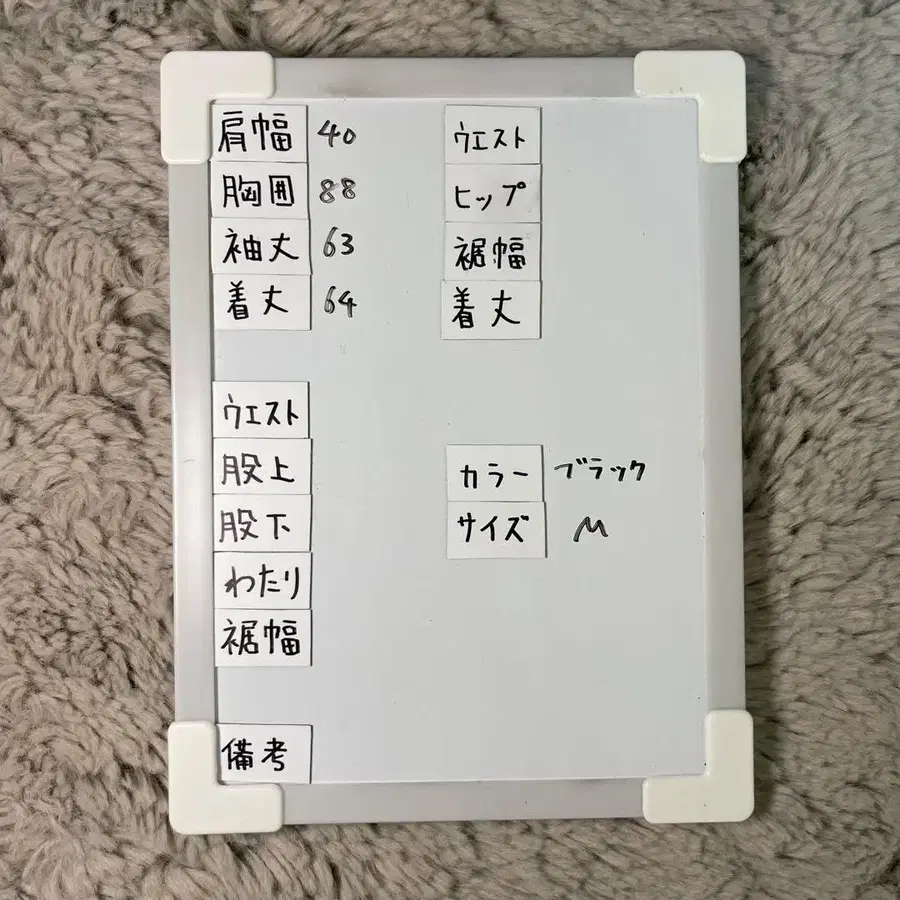 肩幅 40
胸囲 88
袖丈 63
着丈 64
ウエスト
股上
股下
わたり
裾幅
備考
ウエスト
ヒップ
裾幅
着丈
カラー ブラック
サイズ M